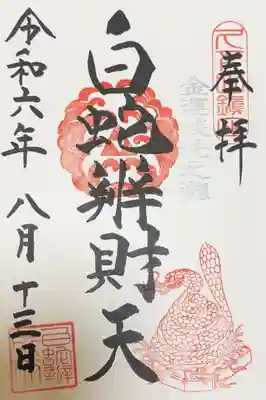 奉拝
金運洗心之瀧
白蛇辨財天
令和六年八月十三日